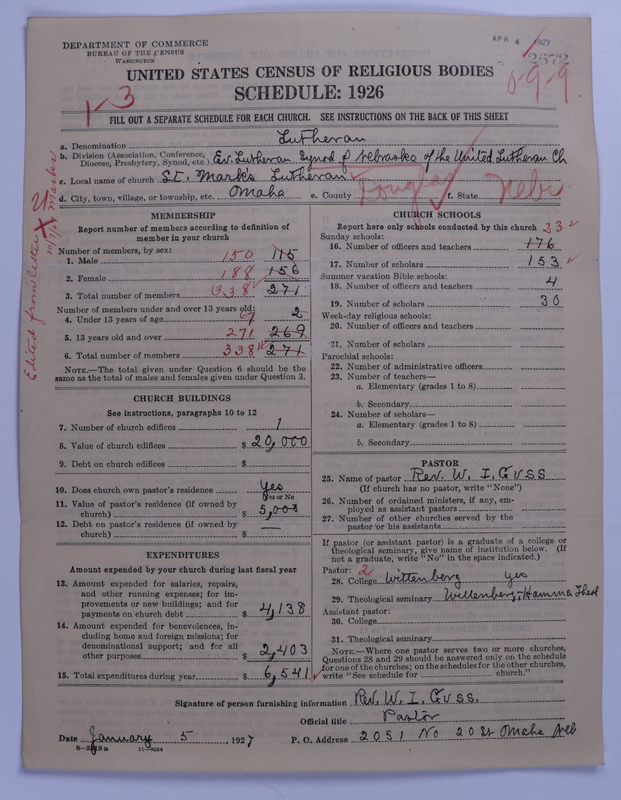 DEPARTMENT OF COMMERCE
BUREAU OF THE CENSUS
WASHINGTON
APR 4 1927
2672
UNITED STATES CENSUS OF RELIGIOUS BODIES
SCHEDULE: 1926
1-3
0-9-9
FILL OUT A SEPARATE SCHEDULE FOR EACH CHURCH. SEE INSTRUCTIONS ON THE BACK OF THIS SHEET
a. Denomination Lutheran
b. Division (Association, Conference, Diocese, Presbytery, Synod, etc.) Ev. Lutheran Synod of Nebraska of the United Lutheran Ch
c. Local name of church St. Mark's Lutheran
d. City, town, village, or township, etc. Omaha e. County Douglas f. State Nebr.
Edited from letter
MEMBERSHIP
Report number of members according to definition of
member in your church
Number of members, by sex:
1. Male 150 115
2. Female 188 156
3. Total number of members 338 271
Number of members under and over 13 years old:
4. Under 13 years of age 67 2
5. 13 years old and over 271 269
6. Total number of members 338 271
NOTE.—The total given under Question 6 should be
same as the total of males and females given under Question 3.
CHURCH BUILDINGS
See instructions, paragraphs 10 to 12
7. Number of church edifices 1
8. Value of church edifices $ 20,000
9. Debt on church edifices $
10. Does church own pastor's residence Yes
Yes or No
11. Value of pastor's residence (if owned by
church) $ 5,000
12. Debt on pastor's residence (if owned by
church) $ —
EXPENDITURES
Amount expended by your church during last fiscal year
13. Amount expended for salaries, repairs,
and other running expenses; for im-
provements or new buildings; and for
payments on church debt $ 4,138
14. Amount expended for benevolences, in-
cluding home and foreign missions; for
denominational support; and for all
other purposes $ 2,403
15. Total expenditures during year $ 6,541
CHURCH SCHOOLS
Report here only schools conducted by this church
23
Sunday schools:
16. Number of officers and teachers 176
17. Number of scholars 153
Summer vacation Bible schools:
18. Number of officers and teachers 4
19. Number of scholars 30
Week-day religious schools:
20. Number of officers and teachers
21. Number of scholars
Parochial schools:
22. Number of administrative officers
23. Number of teachers—
a. Elementary (grades 1 to 8)
b. Secondary
24. Number of scholars—
a. Elementary (grades 1 to 8)
b. Secondary
PASTOR
25. Name of pastor Rev. W. I. Guss
(If church has no pastor, write "None")
26. Number of ordained ministers, if any, em-
ployed as assistant pastors
27. Number of other churches served by the
pastor or his assistants
If pastor (or assistant pastor) is a graduate of a college or
theological seminary, give name of institution below. (If
not a graduate, write "No" in the space indicated.)
Pastor: 2
28. College Wittenberg Yes
29. Theological seminary Wittenberg, Hamma Theol
Assistant pastor:
30. College
31. Theological seminary
NOTE.—Where one pastor serves two or more churches,
Questions 28 and 29 should be answered only on the schedule
for one of the churches; on the schedules for the other churches,
write "See schedule for church."
Signature of person furnishing information Rev. W. I. Guss.
Official title Pastor
Date January 5, 1927 P. O. Address 2051 No 20 St Omaha Neb